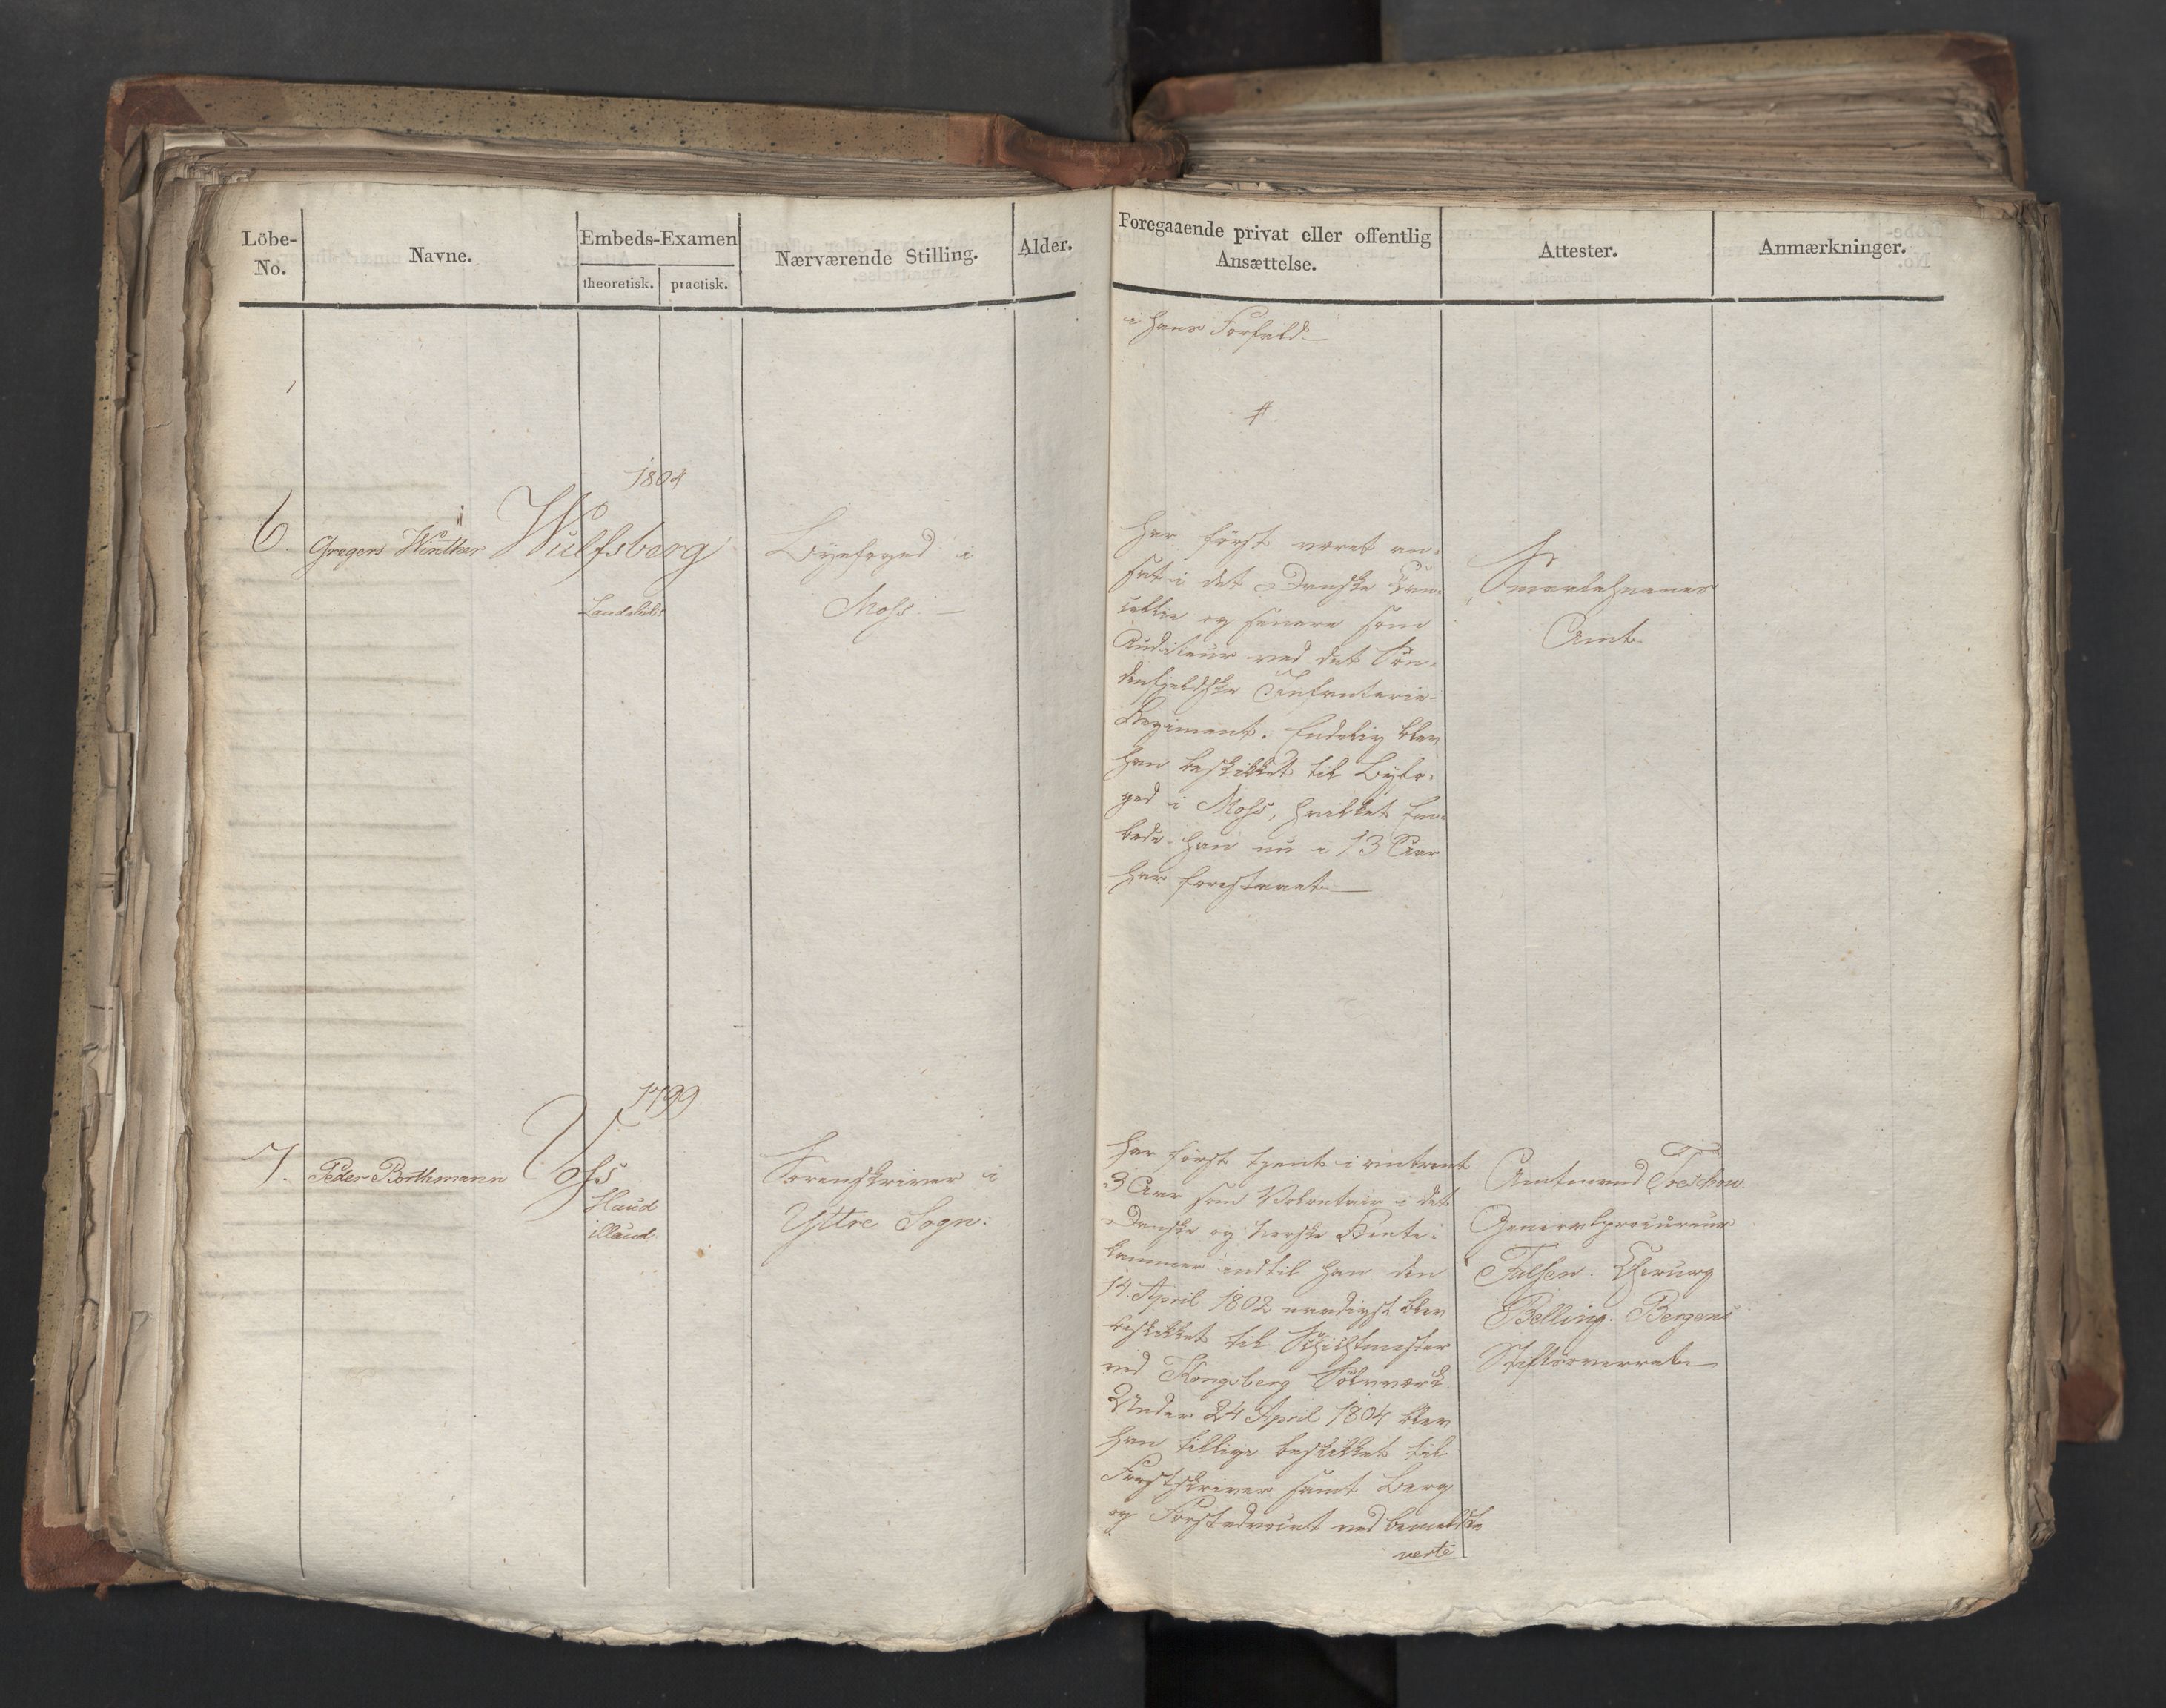 Löbe-
No.
Navne.
Embeds-Examen
theoretisk. practisk.
Nærværende Stilling.
Alder.
Foregaaende privat eller offentlig
Ansættelse.
Attester.
Anmærkninger.
i hans Forfald
#
1804
6. Gregers Winther Wulfsberg
Laudabilis
Byefoged i
Moss
har först været an-
sat i det Danske Can-
cellie og senere som
Auditeur ved det Sön-
denfjeldske Infanterie-
Regiment. Endelig blev
han beskikket til Byefo-
ged i Moss, hvilket Em-
bede han nu i 13 Aar
har forestaaet
Smaalehnenes
Amt
1799
7. Peder Borthmann Voss
Haud
illaud
Sorenskriver i
Yttre Sogn.
har först tjent i omtrent
3 Aar som Volontair i det
Danske og Norske Rente-
kammer indtil han den
14. April 1802 naadigst blev
beskikket til Schichtmester
ved Kongsberg Sölvværk
Under 24 April 1804 blev
han tillige beskikket til
Forstskriver samt Berg
og Forstadvocat ved bemeldte
verte
Amtmand Treschow.
Generalprocureur
Falsen. Chirurg
Belling. Bergens
Stiftsoverret